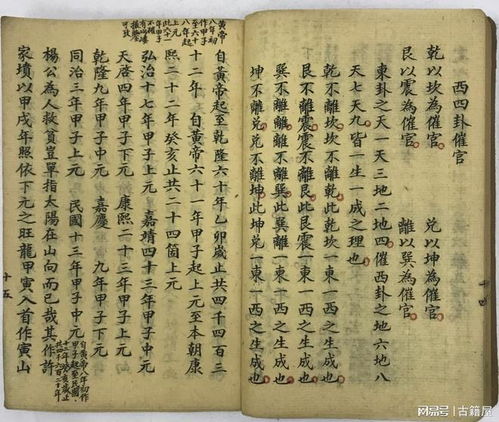 西四卦催官
乾以坎為催官 兌以坤為催官
艮以震為催官 離以巽為催官
東卦之天一天三地二地四催西卦之地六地八
天七天九皆一生一成之理也
乾不離坎坎不離乾此乾坎一東一西之生成也
艮不離震震不離艮此艮震一東一西之生成也
巽不離離離不離巽此巽離一東一西之生成也
坤不離兌兌不離坤此坤兌一東一西之生成也
十四
黃帝八年初作甲子至六十一年甲子上元
自黃帝起至乾隆六十年乙卯歲止共四千四百三
十二年 自黃帝六十一年甲子起上元至本朝康
熙二十二年癸亥止共二十四箇上元
弘治十七年甲子上元 嘉靖四十三年甲子中元
天啓四年甲子下元 康熙二十三年甲子上元
乾隆九年甲子中元 嘉慶 九年甲子下元
同治三年甲子上元 民國十三年甲子中元
自黃帝八年初作甲子起至民國十二年癸亥歲止共四千六百二十年
楊公為人救貧豈單指太陽在山向而已哉其作許
家墳以甲戌年照依下元之旺龍甲寅入首作寅山
十五
网易号 | 古籍屋